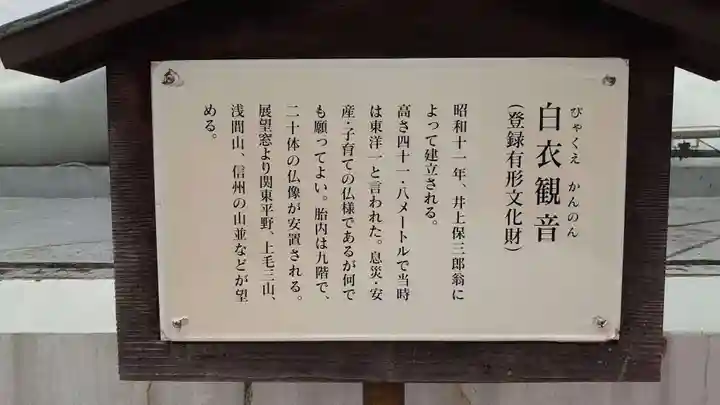 びゃくえ かんのん
白衣観音
(登録有形文化財)
昭和十一年、井上保三郎翁に
よって建立される。
高さ四十一・八メートルで当時
は東洋一と言われた。息災・安
産・子育ての仏様であるが何で
も願ってよい。胎内は九階で、
二十体の仏像が安置される。
展望窓より関東平野、上毛三山、
浅間山、信州の山並などが望
める。